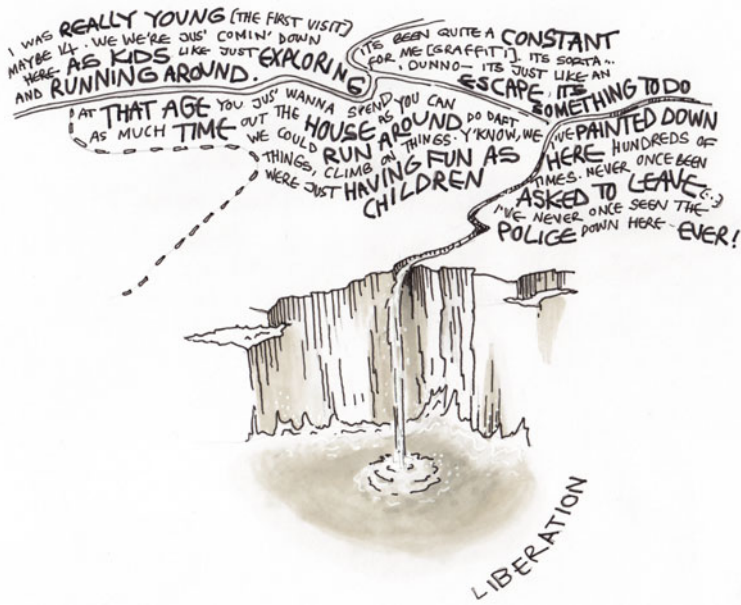 I WAS REALLY YOUNG [THE FIRST VISIT]
MAYBE 14. WE WE'RE JUS' COMIN' DOWN
HERE AS KIDS LIKE JUST EXPLORING
AND RUNNING AROUND.
AT THAT AGE YOU JUS' WANNA SPEND
AS MUCH TIME OUT THE HOUSE AS YOU CAN
WE COULD RUN AROUND DO DAFT
THINGS, CLIMB ON THINGS. Y'KNOW, WE
WERE JUST HAVING FUN AS
CHILDREN
ITS BEEN QUITE A CONSTANT
FOR ME [GRAFFITI]. ITS SORTA...
I DUNNO- ITS JUST LIKE AN
ESCAPE, ITS
SOMETHING TO DO
I'VE PAINTED DOWN
HERE HUNDREDS OF
TIMES. NEVER ONCE BEEN
ASKED TO LEAVE (...)
I'VE NEVER ONCE SEEN THE
POLICE DOWN HERE EVER!
LIBERATION